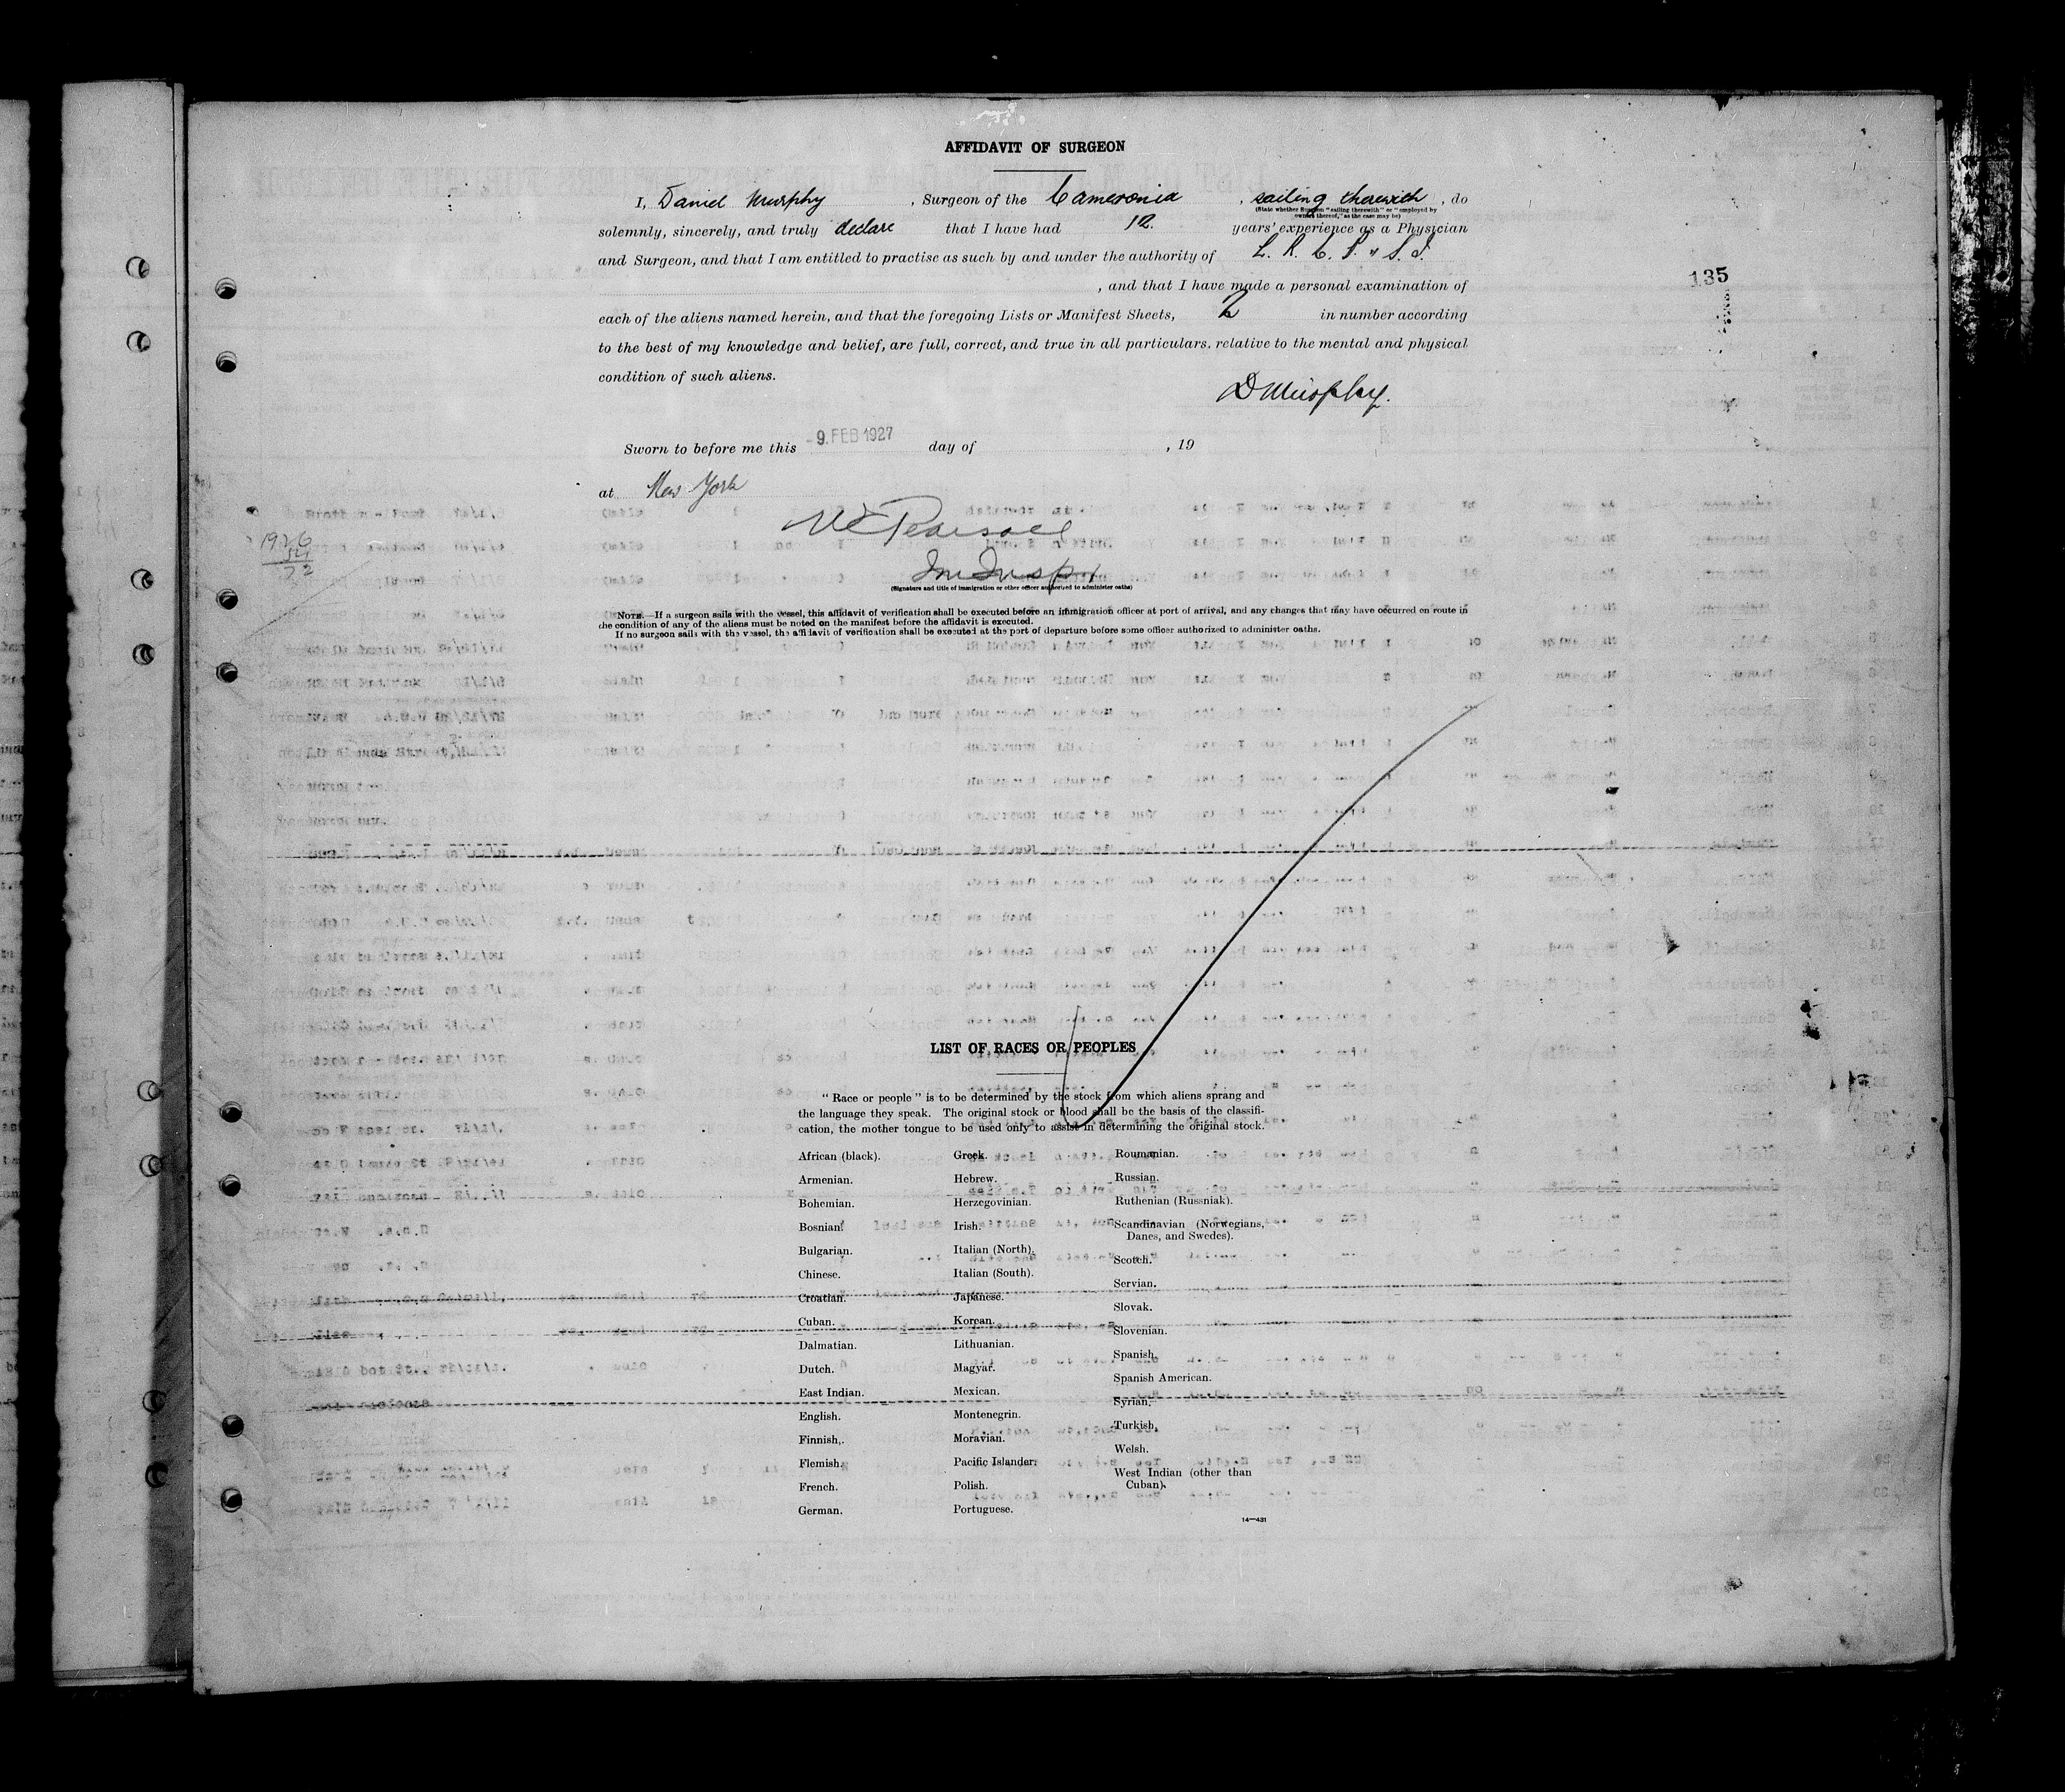 AFFIDAVIT OF SURGEON
I, Daniel Murphy, Surgeon of the Cameronia, sailing therewith, do
(State whether Surgeon "sailing therewith" or "employed by
owners thereof," as the case may be)
solemnly, sincerely, and truly declare that I have had 12. years' experience as a Physician
and Surgeon, and that I am entitled to practise as such by and under the authority of L. R. C. P. " S. I.
, and that I have made a personal examination of
135
each of the aliens named herein, and that the foregoing Lists or Manifest Sheets, 2 in number according
to the best of my knowledge and belief, are full, correct, and true in all particulars. relative to the mental and physical
condition of such aliens.
D Murphy.
Sworn to before me this -9. FEB 1927 day of , 19
at New York
1926
54
72
Im Inspr
(Signature and title of immigration or other officer authorized to administer oaths)
NOTE.—If a surgeon sails with the vessel, this affidavit of verification shall be executed before an immigration officer at port of arrival, and any changes that may have occurred on route in
the condition of any of the aliens must be noted on the manifest before the affidavit is executed.
If no surgeon sails with the vessel, the affidavit of verification shall be executed at the port of departure before some officer authorized to administer oaths.
LIST OF RACES OR PEOPLES
"Race or people" is to be determined by the stock from which aliens sprang and
the language they speak. The original stock or blood shall be the basis of the classifi-
cation, the mother tongue to be used only to assist in determining the original stock.
African (black).
Armenian.
Bohemian.
Bosnian.
Bulgarian.
Chinese.
Croatian.
Cuban.
Dalmatian.
Dutch.
East Indian.
English.
Finnish.
Flemish.
French.
German.
Greek.
Hebrew.
Herzegovinian.
Irish.
Italian (North).
Italian (South).
Japanese.
Korean.
Lithuanian.
Magyar.
Mexican.
Montenegrin.
Moravian.
Pacific Islander.
Polish.
Portuguese.
Roumanian.
Russian.
Ruthenian (Russniak).
Scandinavian (Norwegians,
Danes, and Swedes).
Scotch.
Servian.
Slovak.
Slovenian.
Spanish.
Spanish American.
Syrian.
Turkish.
Welsh.
West Indian (other than
Cuban).
14—431